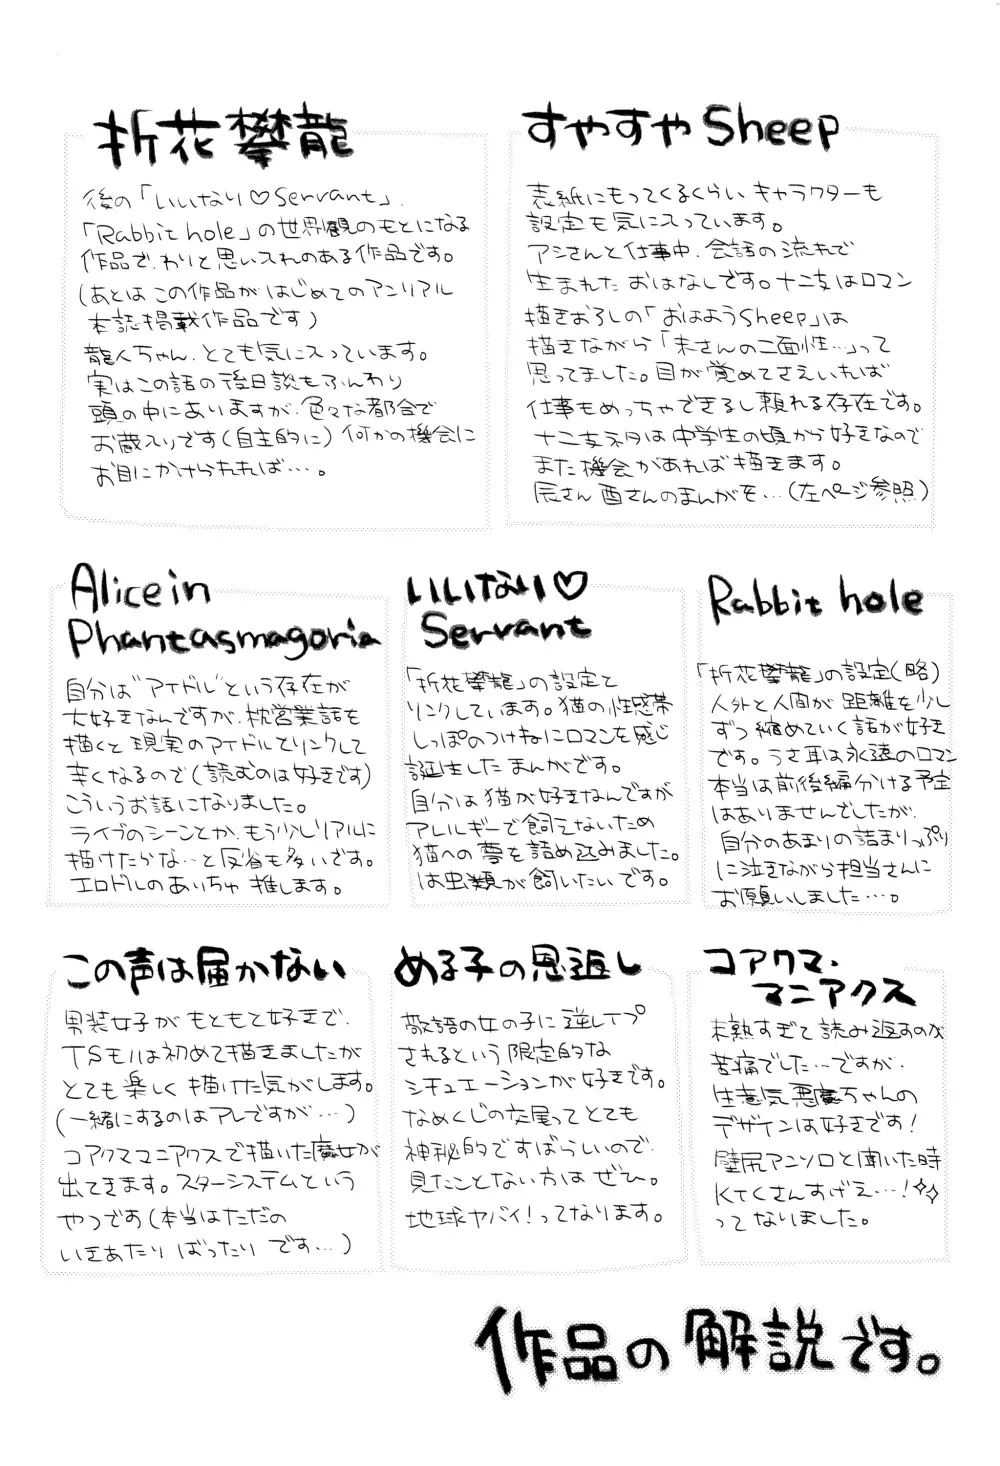 折花攀龍
後の「いいなり♡Servant」、
「Rabbit hole」の世界観のもとになる
作品で、わりと思い入れのある作品です。
(あとは この作品が はじめてのアンリアル
本誌掲載作品です)
龍人ちゃん、とても気に入っています。
実はこの話の後日談もふんわり
頭の中にありますが、色々な都合で
お蔵入りです(自主的に)何かの機会に
お目にかけられれば…。
すやすやSheep
表紙にもってくるくらい キャラクターも
設定も気に入っています。
アシさんと仕事中、会話の流れで
生まれた おはなしです。十二支はロマン
描きおろしの「おはようSheep」は
描きながら「未さんの二面性…」って
思ってました。目が覚めてさえいれば
仕事もめっちゃできるし頼れる存在です。
十二支ネタは中学生の頃から好きなので
また機会があれば描きます。
辰さん 酉さんのまんがを…(左ページ参照)
Alice in
Phantasmagoria
自分は"アイドル"という存在が
大好きなんですが、枕営業話を
描くと現実のアイドルとリンクして
辛くなるので(読むのは好きです)
こういうお話になりました。
ライブのシーンとか、もう少しリアルに
描けたらな…と反省も多いです。
エロドルのあいちゃ 推します。
いいなり♡
Servant
「折花攀龍」の設定と
リンクしています。猫の性感帯
しっぽのつけねにロマンを感じ
誕生したまんがです。
自分は猫が好きなんですが
アレルギーで飼えないため
猫への夢を詰め込みました。
は虫類が飼いたいです。
Rabbit hole
「折花攀龍」の設定(略)
人外と人間が 距離を少し
ずつ縮めていく話が好き
です。うさ耳は永遠のロマン
本当は前後編分ける予定
はありませんでしたが、
自分のあまりの詰まりっぷり
に泣きながら担当さんに
お願いしました…。
この声は届かない
男装女子が もともと好きで、
TSモノは初めて描きましたが
とても楽しく描けた気がします。
(一緒にするのはアレですが…)
コアクママニアクスで描いた魔女が
出てきます。スターシステムという
やつです(本当はただの
いきあたり ばったり です…)
める子の恩返し
敬語の女の子に逆レイプ
されるという限定的な
シチュエーションが好きです。
なめくじの交尾ってとても
神秘的ですばらしいので、
見たことない方はぜひ。
地球ヤバイ!ってなります。
コアクマ・
マニアクス
未熟すぎて読み返すのが
苦痛でした…ですが、
生意気悪魔ちゃんの
デザインは好きです!
壁尻アンソロと聞いた時
KTCさんすげえ…!✧✧
ってなりました。
作品の解説です。